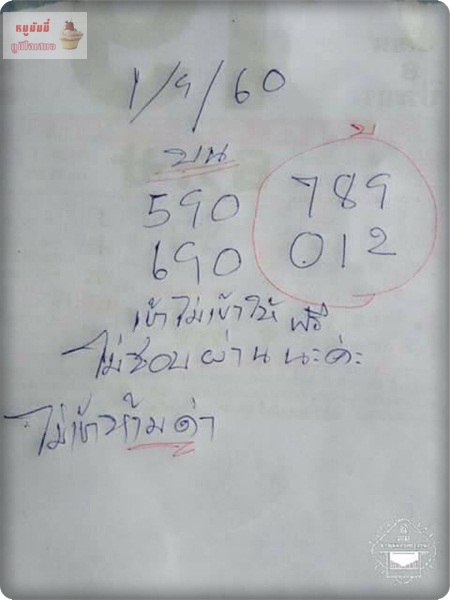 หมูมัมมี่
1/9/60
บน
บ
590 789
690 012
เข้าไม่เข้าให้ ฟรี
ไม่ชอบผ่านนะค่ะ
ไม่เข้าห้ามด่า